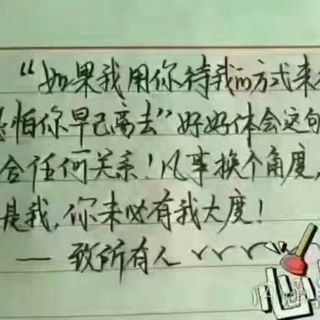 “如果我用你待我的方式来
恐怕你早已离去”好好体会这句
合任何关系！凡事换个角度，
是我，你未必有我大度！
— 致所有人
心